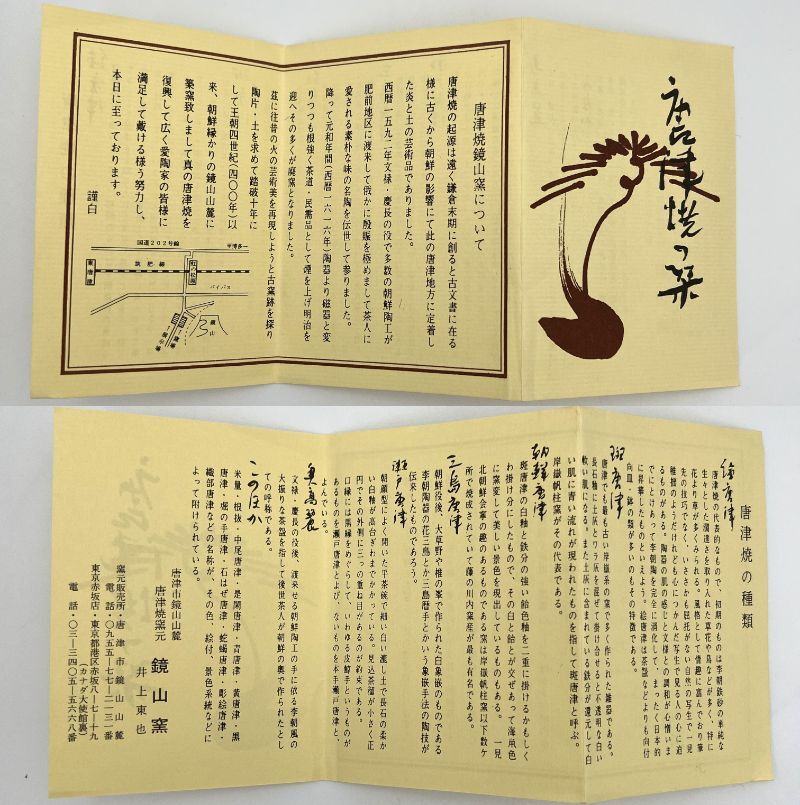 唐津焼の栞
唐津焼鏡山窯について
唐津焼の起源は遠く鎌倉末期に創ると古文書に在る
様に古くから朝鮮の影響にて此の唐津地方に定着し
た炎と土の芸術品でありました。
西暦一五九二年文禄・慶長の役で多数の朝鮮陶工が
肥前地区に渡来して俄かに殷賑を極めまして茶人に
愛される素朴な味の名陶を伝世して参りました。
降って元和年間(西暦一六一六年)陶器より磁器と変
りつつも根強く茶道・民需品として煙を上げ明治を
迎へその多くが廃窯となりました。
茲に往昔の火の芸術美を再現しようと古窯跡を探り
陶片・土を求めて踏破十年に
して王朝四世紀(四〇〇年)以
来、朝鮮縁かりの鏡山山麓に
築窯致しまして真の唐津焼を
復興して広く愛陶家の皆様に
満足して戴ける様う努力し、
本日に至っております。
謹白
国道202号線
至博多
筑肥線
東唐津
虹の松原
バイパス
鏡山
唐津焼の種類
絵唐津
唐津焼の代表的なもので、初期のものは李朝鉄砂の単純な
生々とした溌達さを取り入れた草花や鳥などが多く、特に
花より草が多くみられる。風格として情趣に富んでおり筆
先の技巧でなく、いささかも屈託がない自然の写生で一見
稚拙のようだけれども心につかんだ写生で見る人の心に迫
るものがある。陶器の肌の感じと文様との調和が心憎いま
でにとけあって李朝陶を完全に消化して、まったく日本的
に昇華したものといえよう。絵唐津は茶盌などよりも向付
向皿、鉢の類が多いのもその特徴である。
斑唐津
唐津でも最も古い岸嶽系の窯で多く作られた雑器である。
長石釉に土灰とワラ灰を混ぜて掛け合せると不透明な白い
軟い肌になる。また土灰に含まれている鉄分が還元して白
い肌に青い流れが現われたものを指して斑唐津と呼ぶ。
岸嶽帆柱窯がその代表である。
朝鮮唐津
斑唐津の白釉と鉄分の強い飴色釉を二重に掛けるかもしく
わ掛け分にしたもので、その白と飴とが交ぜあって海鼠色
に窯変して美しい景色を現出しているものもある。 一見
北朝鮮会寧の趣のあるものである窯は岸嶽帆柱窯以下数ケ
所で焼成されていて藤の川内窯産が最も有名である。
三島唐津
朝鮮役後、大草野や椎の峯で作られた白象嵌のものである
李朝陶器の花三島とか三島暦手とかいう象嵌手法の陶技が
伝来したものであろう。
瀬戸唐津
朝顔型によく開いた平茶碗で細い白い漉し土で長石の柔か
い白釉が高台ぎわまでかかっている。見込茶溜が小さく正
円でその外側に三つの重ね目があるのが約束である。
口縁には黒縁をめぐらして、いわゆる皮鯨手というものが
あるものを瀬戸唐津とよび、ないものを本手瀬戸唐津と、
よんでいる。
奥高麗
文禄・慶長の役後、渡来せる朝鮮陶工の手に依る李朝風の
大振りな茶盌を指して後世茶人が朝鮮の奥で作られたとし
ての呼称である。
このほか
米量・根抜・中尾唐津・是閑唐津・青唐津・黄唐津・黒
唐津・堀の手唐津・石はぜ唐津・蛇蝎唐津・彫絵唐津・
織部唐津などの名称が、その色、絵付、景色、系統などに
よって附けられている。
唐津市鏡山山麓
唐津焼窯元 鏡山窯
井上東也
窯元販売所・唐津市鏡山山麓
電話・〇九五五―七七―二一三一番
東京赤坂店・東京都港区赤坂八―七―十九
(カナダ大使館裏)
電話・〇三―三四〇五―五六六八番